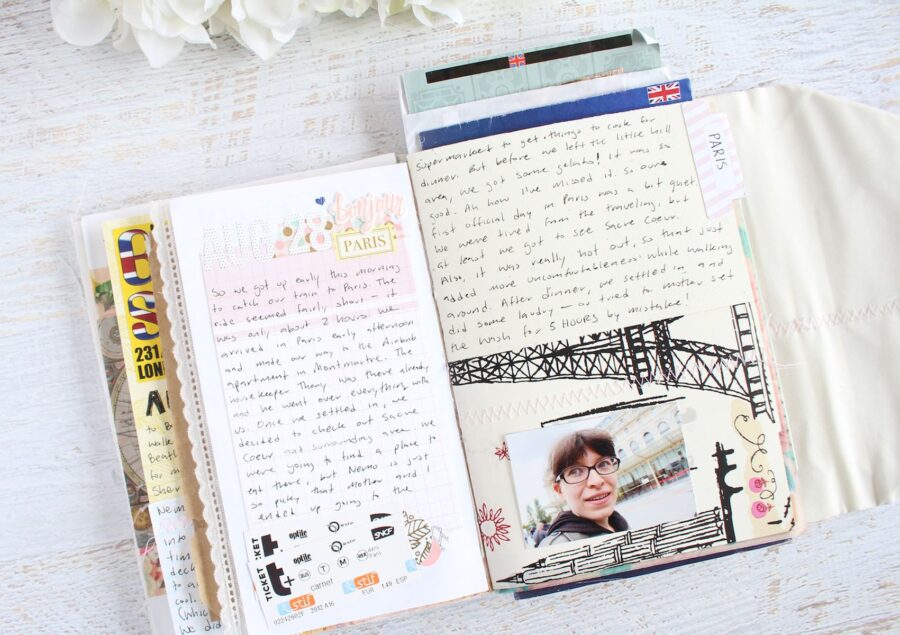 231
LON
to B
walk
Beatl
for m
Sher
Nem
into
tim
deck
to a
cool.
(Whic
we did
AUG 28
Bonjour
PARIS
So we got up early this morning
to catch our train to Paris. The
ride seemed fairly short – it
was only about 2 hours. We
arrived in Paris early afternoon
and made our way to the Airbnb
apartment in Montmartre. The
housekeeper Thany was there already
and he went over everything with
us. Once we settled in, we
decided to check out Sacre
Coeur and surrounding area. We
were going to find a place to
eat there, but Nemo is just
so picky that mother and I
ended up going to the
TICKET
optile
SNCF
TICKET
t+
optile
RATP
SNCF
bus T M
carnet
stif
stif
EUR 1,49 ESP
02242602F 2012A16
PARIS
supermarket to get things to cook for
dinner. But before we left the little hill
area, we got some gelato! It was so
good. Ah how I've missed it. So our
first official day in Paris was a bit quiet
we were tired from the traveling, but
at least we got to see Sacre Coeur.
Also, it was really hot out, so that just
added more uncomfortableness while walking
around. After dinner, we settled in and
did some laundry – or tried to mother set
the wash for 5 HOURS by mistake!